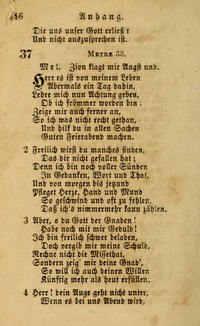 46 Anhang.
Die uns unser Gott erließ't
Und nicht auszusprechen ist.
37 Metre 33.
Mel. Zion klagt mir Angst und.
Herr es ist von meinem Leben
Abermals ein Tag dahin,
Lehre mich nun Achtung geben,
Ob ich frömmer worden bin:
Zeige mir auch ferner an,
So ich was nicht recht gethan,
Und hilf du in allen Sachen
Guten Feierabend machen.
2 Freilich wirst du manches finden,
Das dir nicht gefallen hat;
Denn ich bin noch voller Sünden
In Gedanken, Wort und That,
Und von morgen bis jetzund
Pfleget Herze, Hand und Mund
So geschwind und oft zu fehlen,
Daß ich's nimmermehr kann zählen.
3 Aber, o du Gott der Gnaden!
Hab noch mit mir Geduld!
Ich bin freilich schwer beladen,
Doch vergib mir meine Schuld,
Rechne nicht die Missethat,
Sondern zeig' mir deine Gnad',
So will ich auch deinen Willen
Künftig mehr als heut erfüllen.
4 Herr! dein Auge geht nicht unter,
Wenn es bei uns Abend wird,